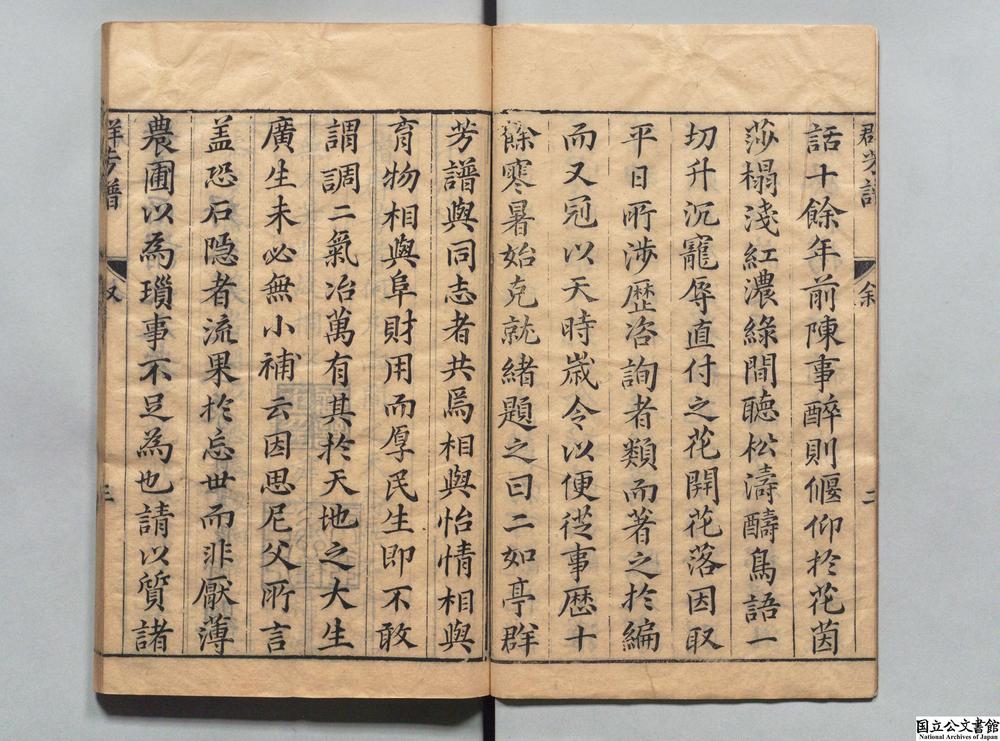 群芳譜 叙 二
話十餘年前陳事醉則偃仰於花茵
莎榻淺紅濃綠間聽松濤醻鳥語一
切升沉寵辱直付之花開花落因取
平日所涉歷咨詢者類而著之於編
而又冠以天時嵗令以便從事歷十
餘寒暑始克就緒題之曰二如亭群
芳譜與同志者共焉相與怡情相與
育物相與阜財用而厚民生即不敢
謂調二氣冶萬有其於天地之大生
廣生未必無小補云因思尼父所言
盖恐石隱者流果於忘世而非厭薄
農圃以為瑣事不足為也請以質諸
群芳譜 三
国立公文書館
National Archives of Japan